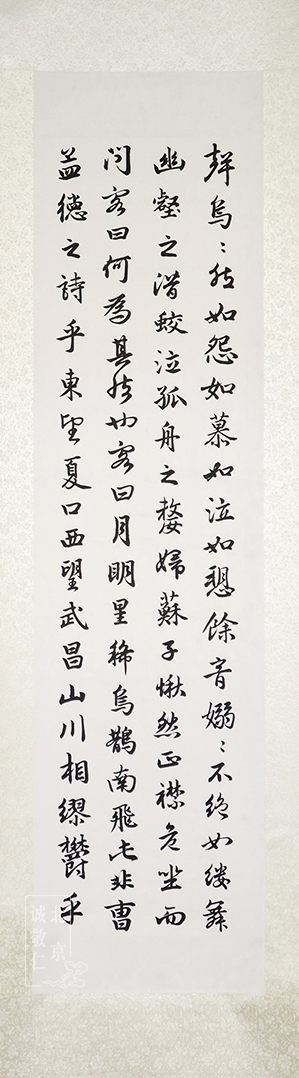 聲烏〻然如怨如慕如泣如愬餘音嫋〻不絕如縷舞
幽壑之潛蛟泣孤舟之嫠婦蘇子愀然正襟危坐而
問客曰何為其然也客曰月明星稀烏鵲南飛此非曹
孟德之詩乎東望夏口西望武昌山川相繆鬱乎
北京
诚敬仁